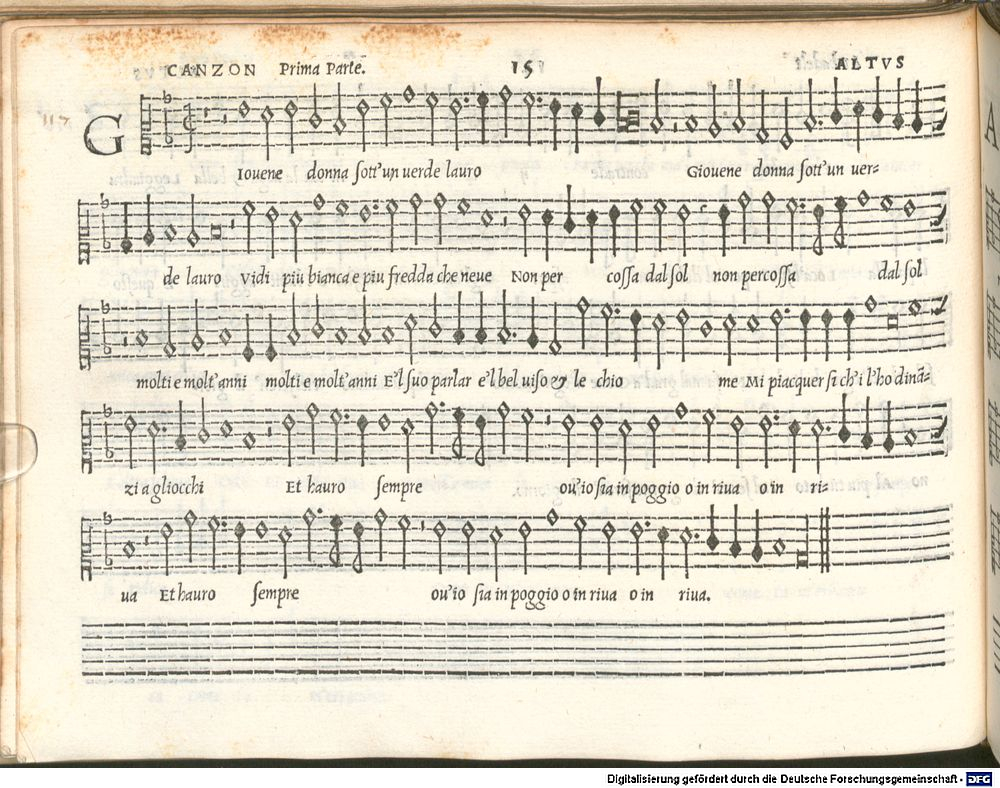 CANZON Prima Parte. 15 ALTVS
G
Iouene donna sott'un uerde lauro Giouene donna sott'un uer=
de lauro Vidi piu bianca e piu fredda che neue Non per cossa dal sol non percossa dal sol
molti e molt'anni molti e molt'anni E'l suo parlar e'l bel uiso & le chio me Mi piacquer si ch'i l'ho dinã=
zi a gliocchi Et hauro sempre ou'io sia in poggio o in riua o in ri=
ua Et hauro sempre ou'io sia in poggio o in riua o in riua.
Digitalisierung gefördert durch die Deutsche Forschungsgemeinschaft - DFG